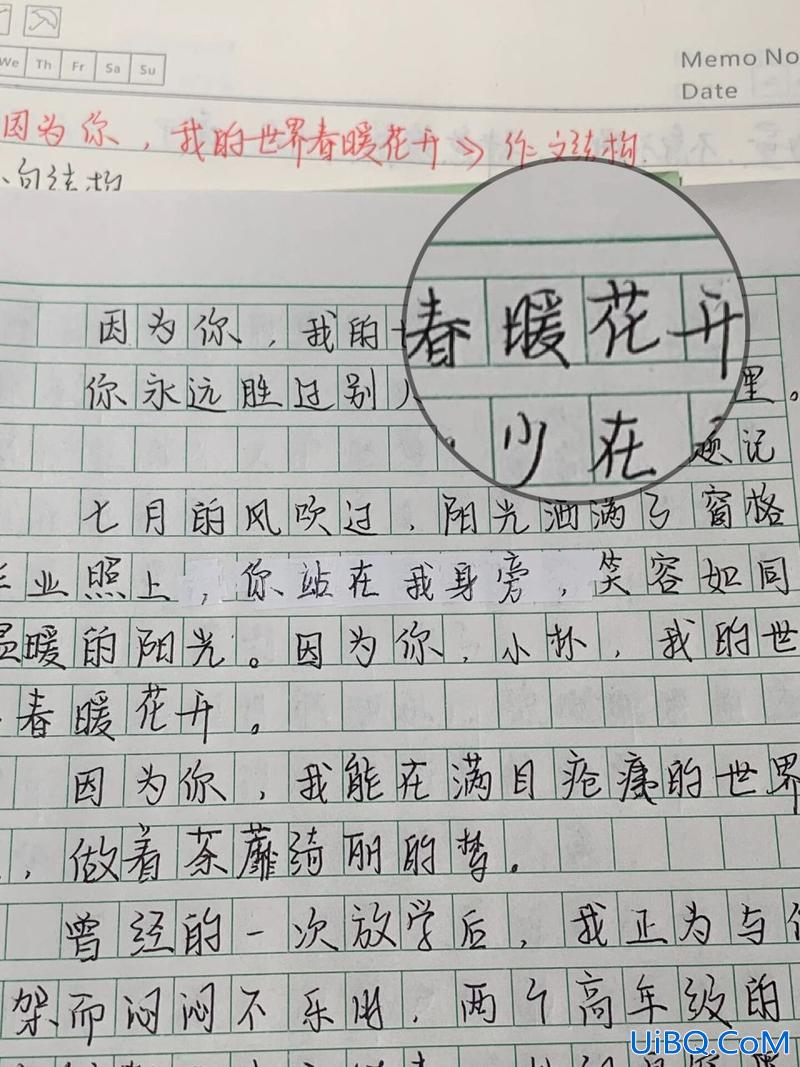 We Th Fr Sa Su
Memo No
Date
因为你，我的世界春暖花开 => 作文结构
句结构
因为你，我的
春暖花开
你永远胜过别
里。
少在
题记
七月的风吹过，阳光洒满了窗格
业照上，你站在我身旁，笑容如同
温暖的阳光。因为你，小朴，我的世
春暖花开。
因为你，我能在满目疮痍的世界
，做着荼蘼绮丽的梦。
曾经的一次放学后，我正为与
架而闷闷不乐时，两个高年级的
UiBQ.CoM